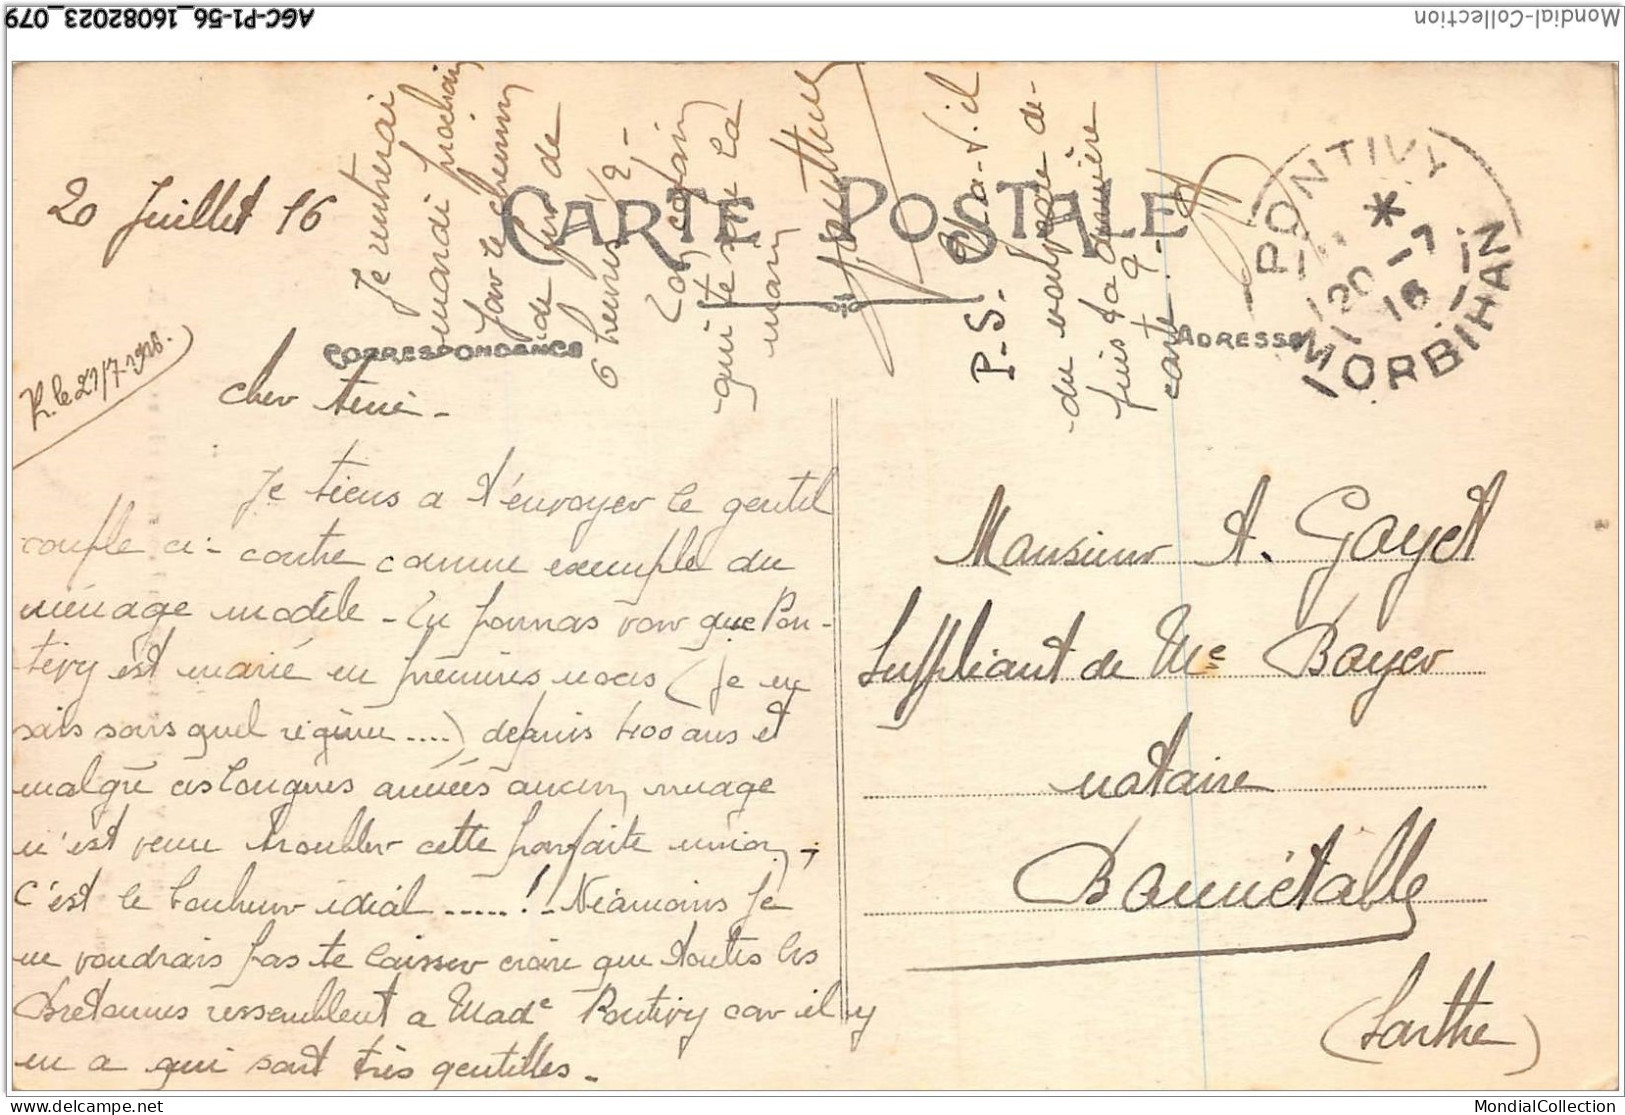 AGC-P1-56_16082023_079
Mondial-Collection
20 Juillet 16
CARTE POSTALE
CORRESPONDANCE
ADRESSE
PONTIVY
20-7
16
MORBIHAN
R. le 21/7-1916.
Cher
Je tiens a t'envoyer le gentil
couple ci-contre comme exemple du
ménage modèle - Tu pourras voir que Pon-
tivy est marié en premières noces (je ne
sais sous quel régime ....) depuis 400 ans et
malgré ces longues années aucun nuage
n'est venu troubler cette parfaite union,
C'est le bonheur idéal .....! - Néamoins je
ne voudrais pas te laisser croire que toutes les
Bretonnes ressemblent a Made Pontivy car il y
en a qui sont très gentilles -
Je rentrerai
mardi prochain
par le
de
6 heures 1/2 -
Ton copain
qui te serre la
main
P.S. - Y a-t-il
du de-
puis ta dernière
carte ? -
Monsieur A. Gayet
Suppléant de Me Boyer
notaire
Bonnétable
(Sarthe)
MondialCollection